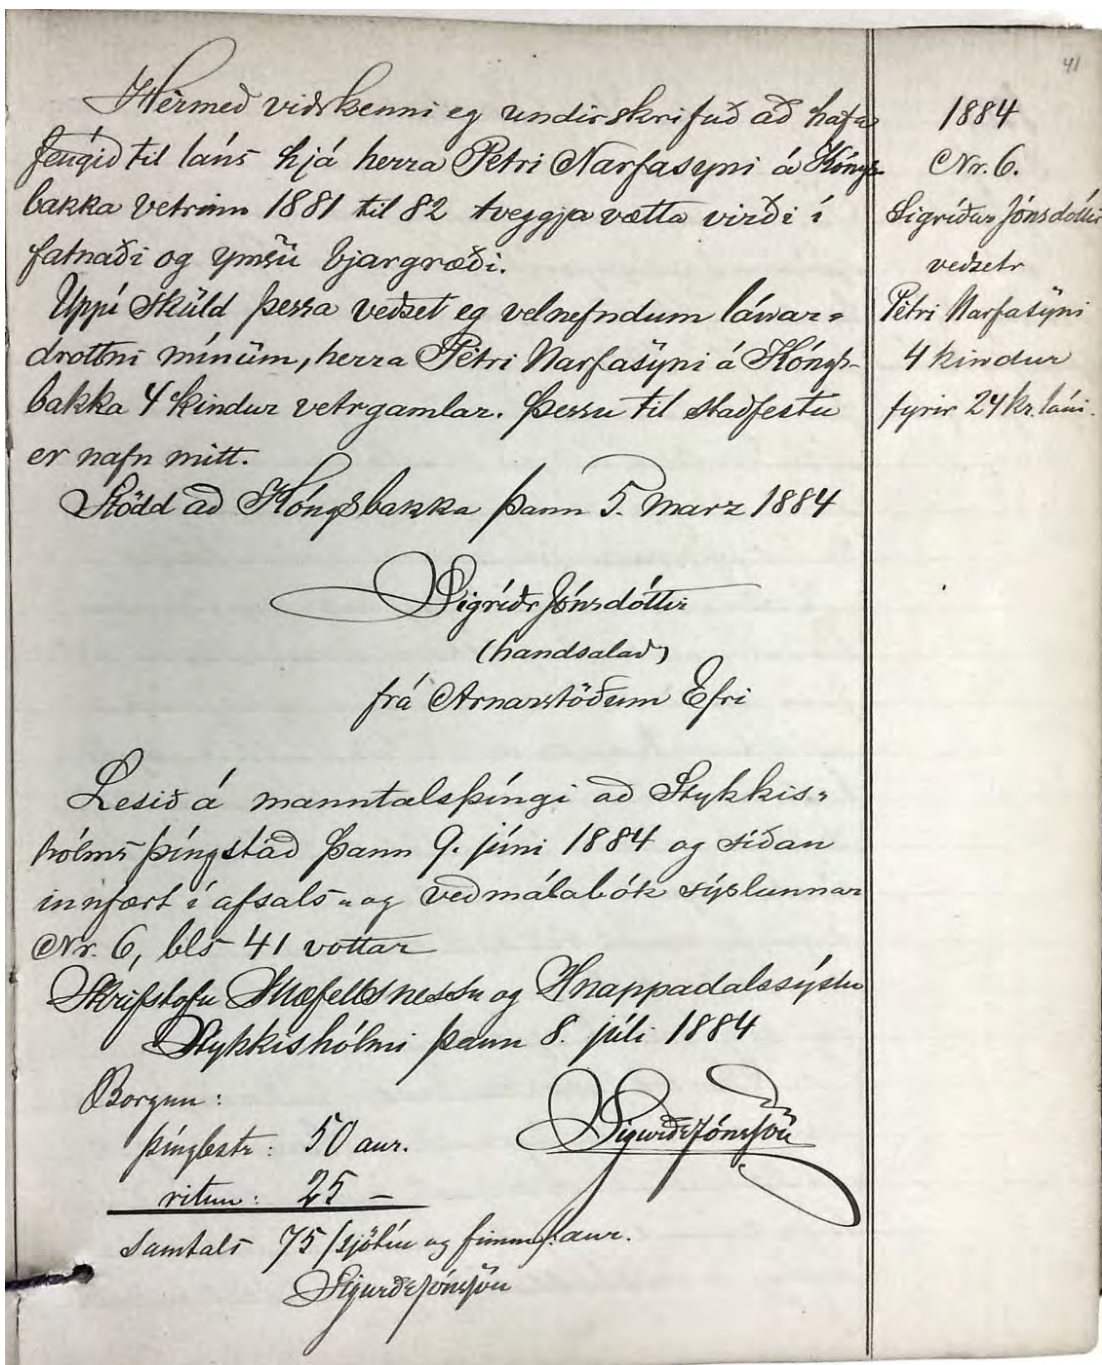 41
Hèrmeð viðrkenni eg undirskrifuð að hafa
feingið til láns hjá herra Pétri Narfasyni á Kóngs-
bakka vetrinn 1881 til 82 tveggja vætta virði í
fatnaði og ymsü bjargræði.
Uppí Skúld þessa veðset eg velnefndum lánar=
drottni mínüm, herra Pétri Narfasÿni á Kóngs-
bakka 4 kindur vetrgamlar. Þessu til staðfestu
er nafn mitt.
Stödd að Kóngsbakka þann 5. Marz 1884
Sigríðr Jónsdóttir
(handsalað)
frá Arnarstöðum Efri
Lesið á manntalsþíngi að Stykkis=
hólms þíngstað þann 9. júni 1884 og síðan
innfært í afsals- og veðmálabók sýslunnar
Nr. 6, bls 41 vottar
Skrifstofu Snæfellsness og Hnappadalssýslu
Stykkishólmi þann 8. júli 1884
Sigurðr Jónsson
Borgun:
þínglestr: 50 aur.
ritun: 25 —
Samtals 75 /sjötíu og fimm/: aur.
Sigurðr Jónsson
1884
Nr. 6.
Sigríður Jónsdóttir
veðsetr
Pétri Narfasÿni
4 kindur
fyrir 24 kr. láni.